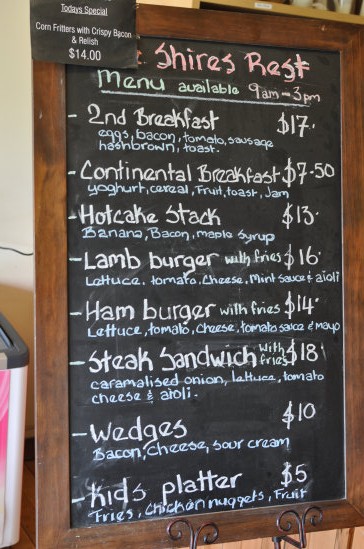 Todays Special
Corn Fritters with Crispy Bacon
& Relish
$14.00
Shires Rest
Menu available 9am - 3pm
- 2nd Breakfast $17.
eggs, bacon, tomato, sausage
hashbrown, toast.
- Continental Breakfast $7.50
yoghurt, cereal, Fruit, toast, Jam
- Hotcake Stack $13.
Banana, Bacon, maple syrup
- Lamb burger with fries $16.
Lettuce, tomato, cheese, Mint sauce & aioli
- Ham burger with fries $14.
Lettuce, tomato, cheese, tomato sauce & mayo
- Steak Sandwich with fries $18
caramalised onion, lettuce, tomato
cheese & aioli.
- Wedges $10
Bacon, Cheese, sour cream
- Kids platter $5
Fries, chicken nuggets, Fruit